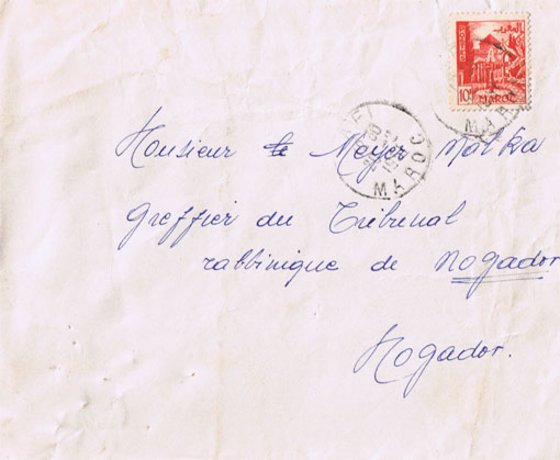 المغرب
10F MAROC
MAROC
MAROC
Monsieur le Meyer Malka
Greffier du Tribunal
rabbinique de Mogador
Mogador.